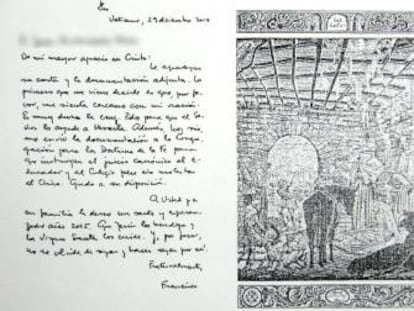 Vaticano, 29 diciembre 2014
De mi mayor aprecio en Cristo: He
su carta y la documentación adjunta. Lo
primero que me viene decirle es que, por
favor, me sienta cercano con mi oración.
Es muy dura la cruz. Pido para que el
Señor lo ayude a llevarla. Además, hoy mismo,
envío la documentación a la Congre
gación para la Doctrina de la Fe para
que instruyan el juicio canónico al e
ducador y al Colegio
el Caso. Quedo a su disposición.
A Usted y a
su familia le deseo un santo y esperan
zado año 2015. Que Jesús los bendiga y
la Virgen Santa los cuide. Y, por favor,
no se olvide de rezar y hacer rezar por mí.
Fraternalmente,
Francisco